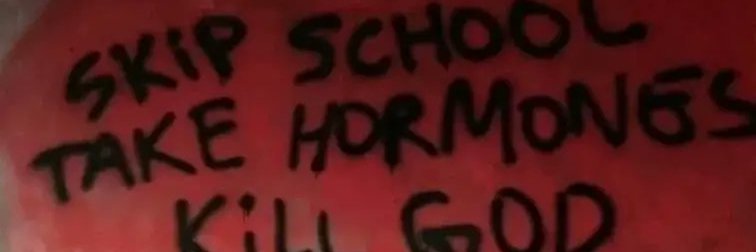 SKiP SCHOOL
TAKE HORMONES
KiLL GOD